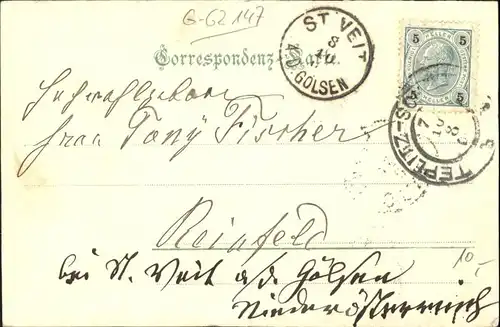 G-G2 147
Correspondenz-Karte.
ST VEIT
8
A.D. GÖLSEN
5 5
HELLER HELLER
5 5
TEPLITZ-SC
7
8
Hochwohlgeboren
Frau Tony Fischer
Reinfeld
10,-
bei St. Veit a/d. Gölsen
Niederösterreich